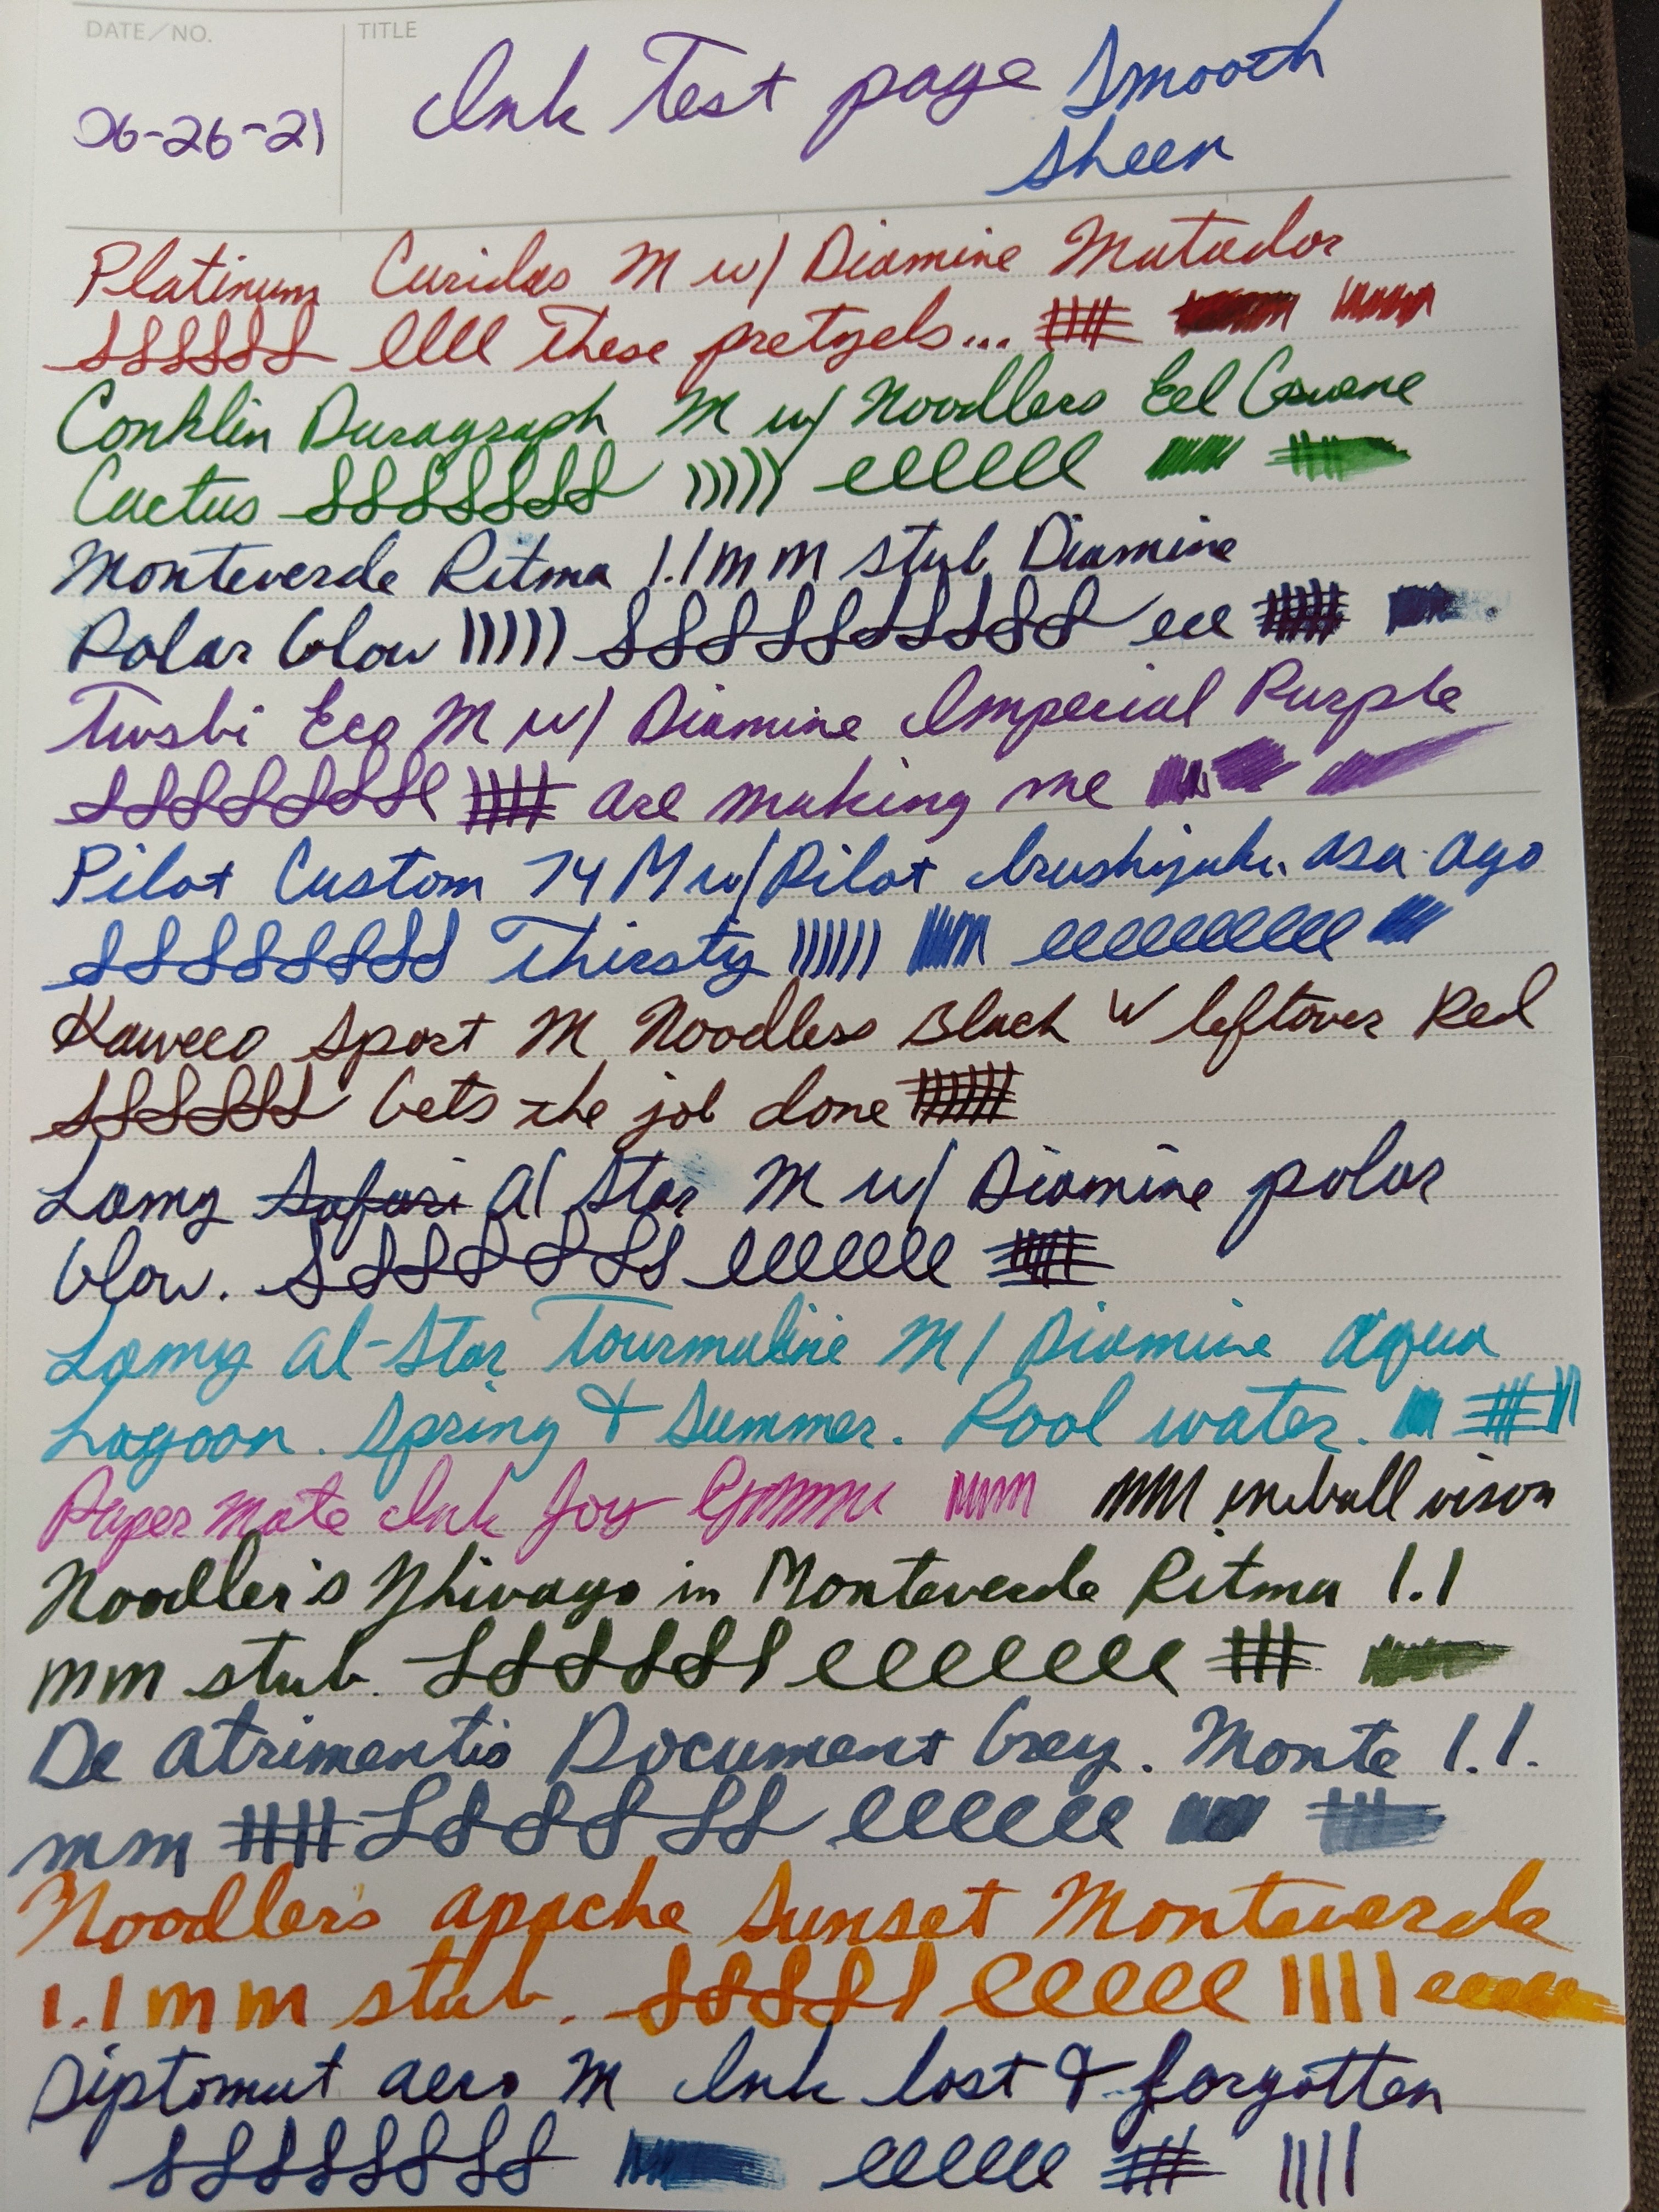 DATE/NO. TITLE
06-26-21 Ink Test page Smooth
Sheen
Platinum Curidas M w/ Diamine Matador
SSSSSS llll These pretzels...
Conklin Duragraph M w/ Noodlers Eel
Cactus SSSSSSS ))))) eeeeee
Monteverde Ritma 1.1mm stub Diamine
Polar Glow ))))) SSSSSSSSSS eee
Twsbi Eco M w/ Diamine Imperial Purple
SSSSSSSS are making me
Pilot Custom 74 M w/ Pilot asa-gao
SSSSSSSS Thirsty eeeeeeeeee
Kaweco Sport M Noodlers Black W leftover Red
SSSSSS Gets the job done
Lamy Safari Al Star M w/ Diamine polar
Glow. SSSSSSSS eeeeeee
Lamy Al-Star Tourmaline M/ Diamine Aqua
Lagoon. Spring & Summer. Pool water.
Paper Mate Ink Joy uniball vison
Noodler's Zhivago in Monteverde Ritma 1.1
mm stub. SSSSSS eeeeeeee
De Atrimentis Document Grey. Monte 1.1.
mm SSSSSS eeeeeee
Noodler's Apache Sunset Monteverde
1.1mm stub. SSSSS eeeeee
Diplomat aero M Ink lost & forgotten
SSSSSSSS eeeeee